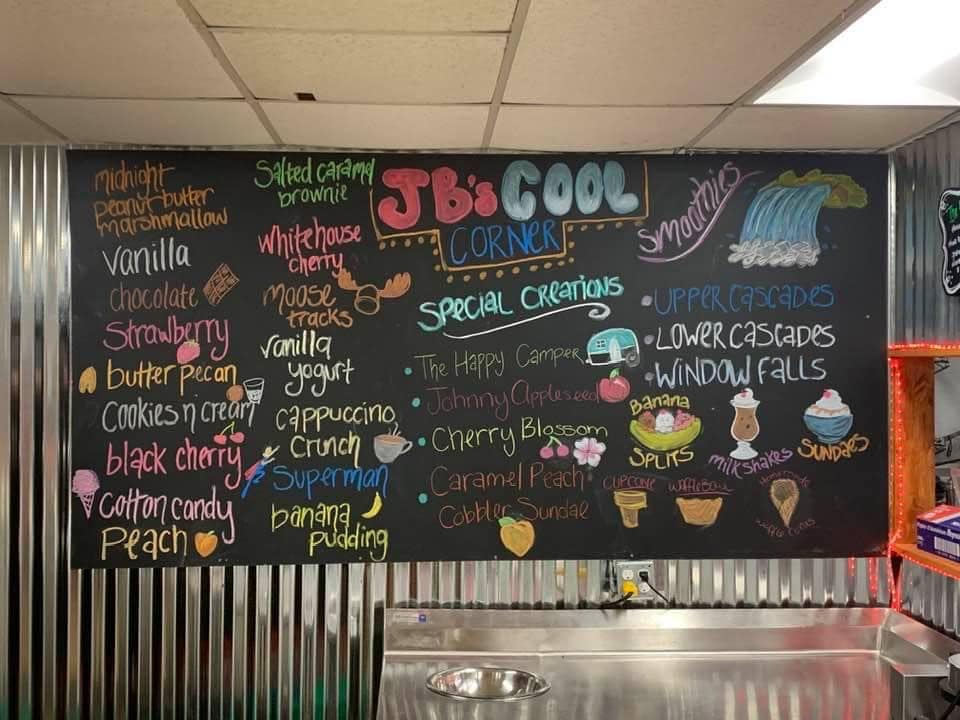 midnight
peanut butter
marshmallow
vanilla
chocolate
Strawberry
butter pecan
Cookies n cream
black cherry
Cotton candy
Peach
Salted caramel
brownie
White house
cherry
moose
tracks
vanilla
yogurt
cappuccino
crunch
Superman
banana
pudding
JB's COOL
CORNER
Special Creations
The Happy Camper
Johnny Appleseed
Cherry Blossom
Caramel Peach
Cobbler Sundae
Smoothies
UPPER CASCADES
LOWER CASCADES
WINDOW FALLS
BANANA
SPLITS
milkshakes
SUNDAES
CUPCONE
WAFFLE BOWL
Homemade
Waffle Cones